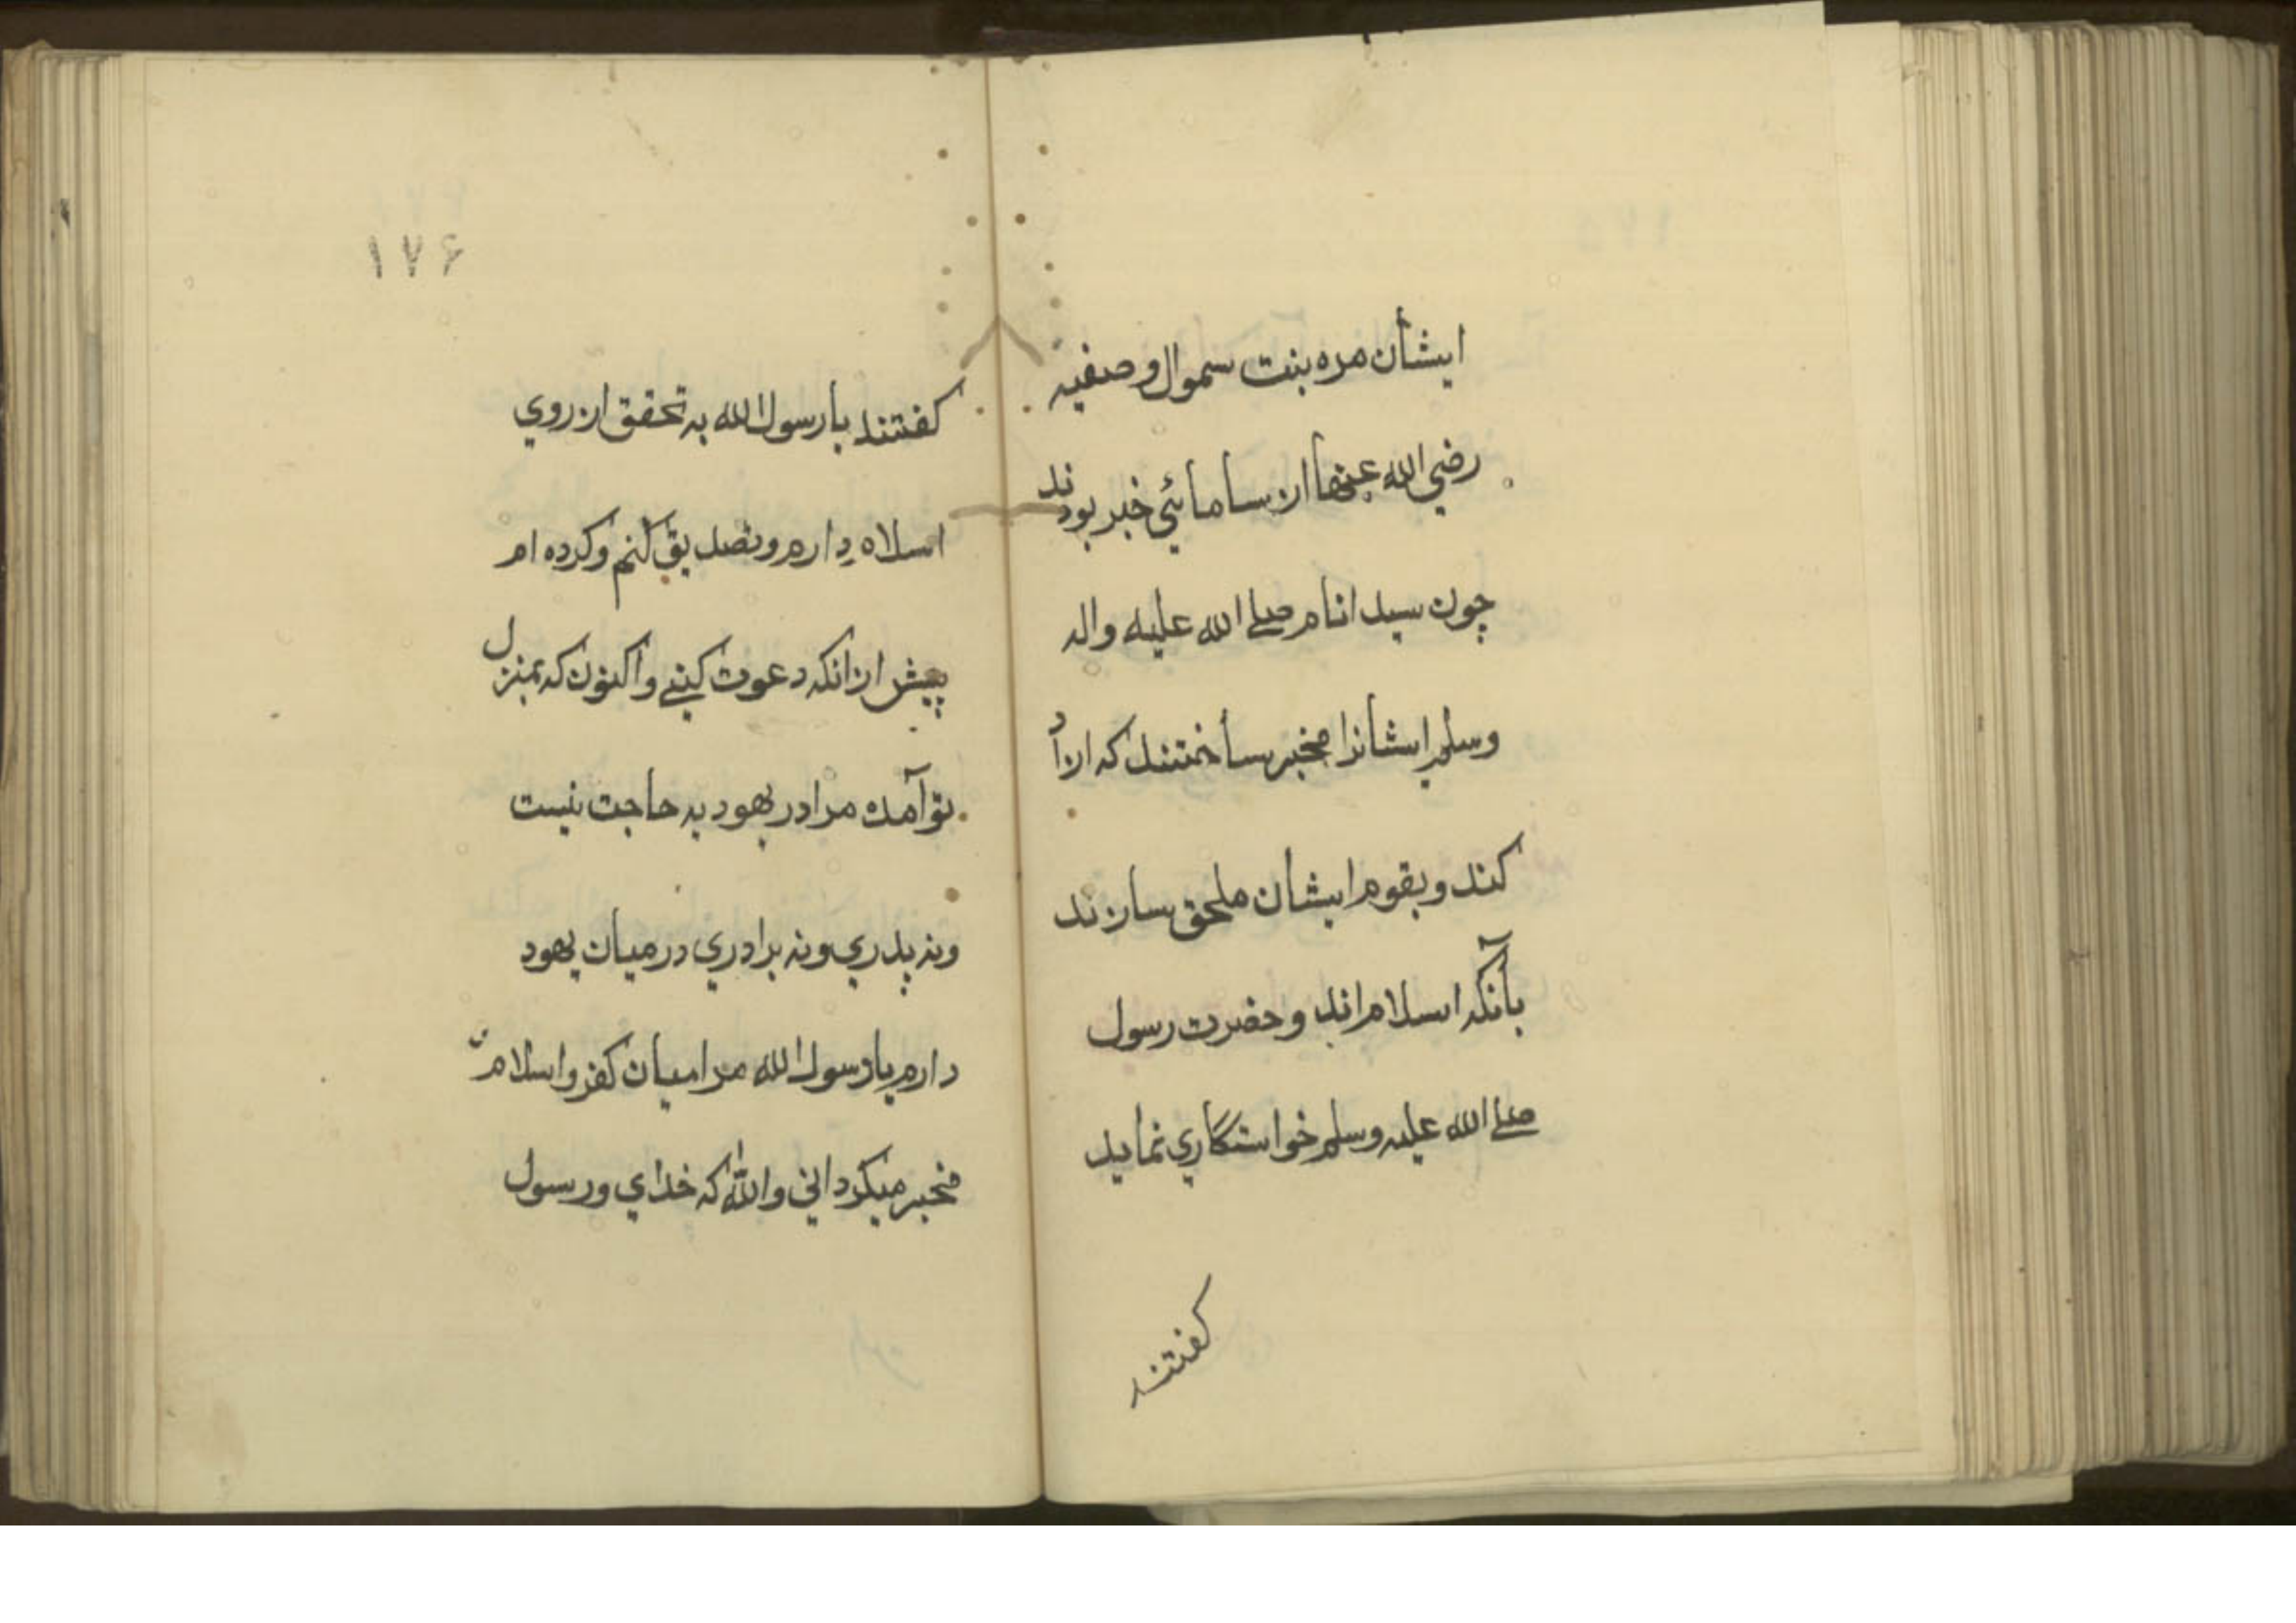 ایشان مره بنت سموال و صفیه
رضي الله عنهما ازن سامائي خبر بودند
چون سید انام صلے الله علیه واله
وسلم ایشانرا مخیر ساختند که ازاد
کند و بقوم ایشان ملحق سازند
بآنکه اسلام اند و حضرت رسول
صلے الله علیه وسلم خواستکاري نماید
کفتند
۱۷۶
کفتند یا رسول الله به تحقق از روي
اسلاه دارم و تصدیق کنم و کرده ام
پیش از انکه دعوت کنے و اکنون که بمنزل
تو آمده مرا در یهود به حاجت نیست
و نه پدري و نه برادري در میان یهود
دارم یا رسول الله مرا میان کفر و اسلام
مخیر میکرداني والله که خداي و رسول